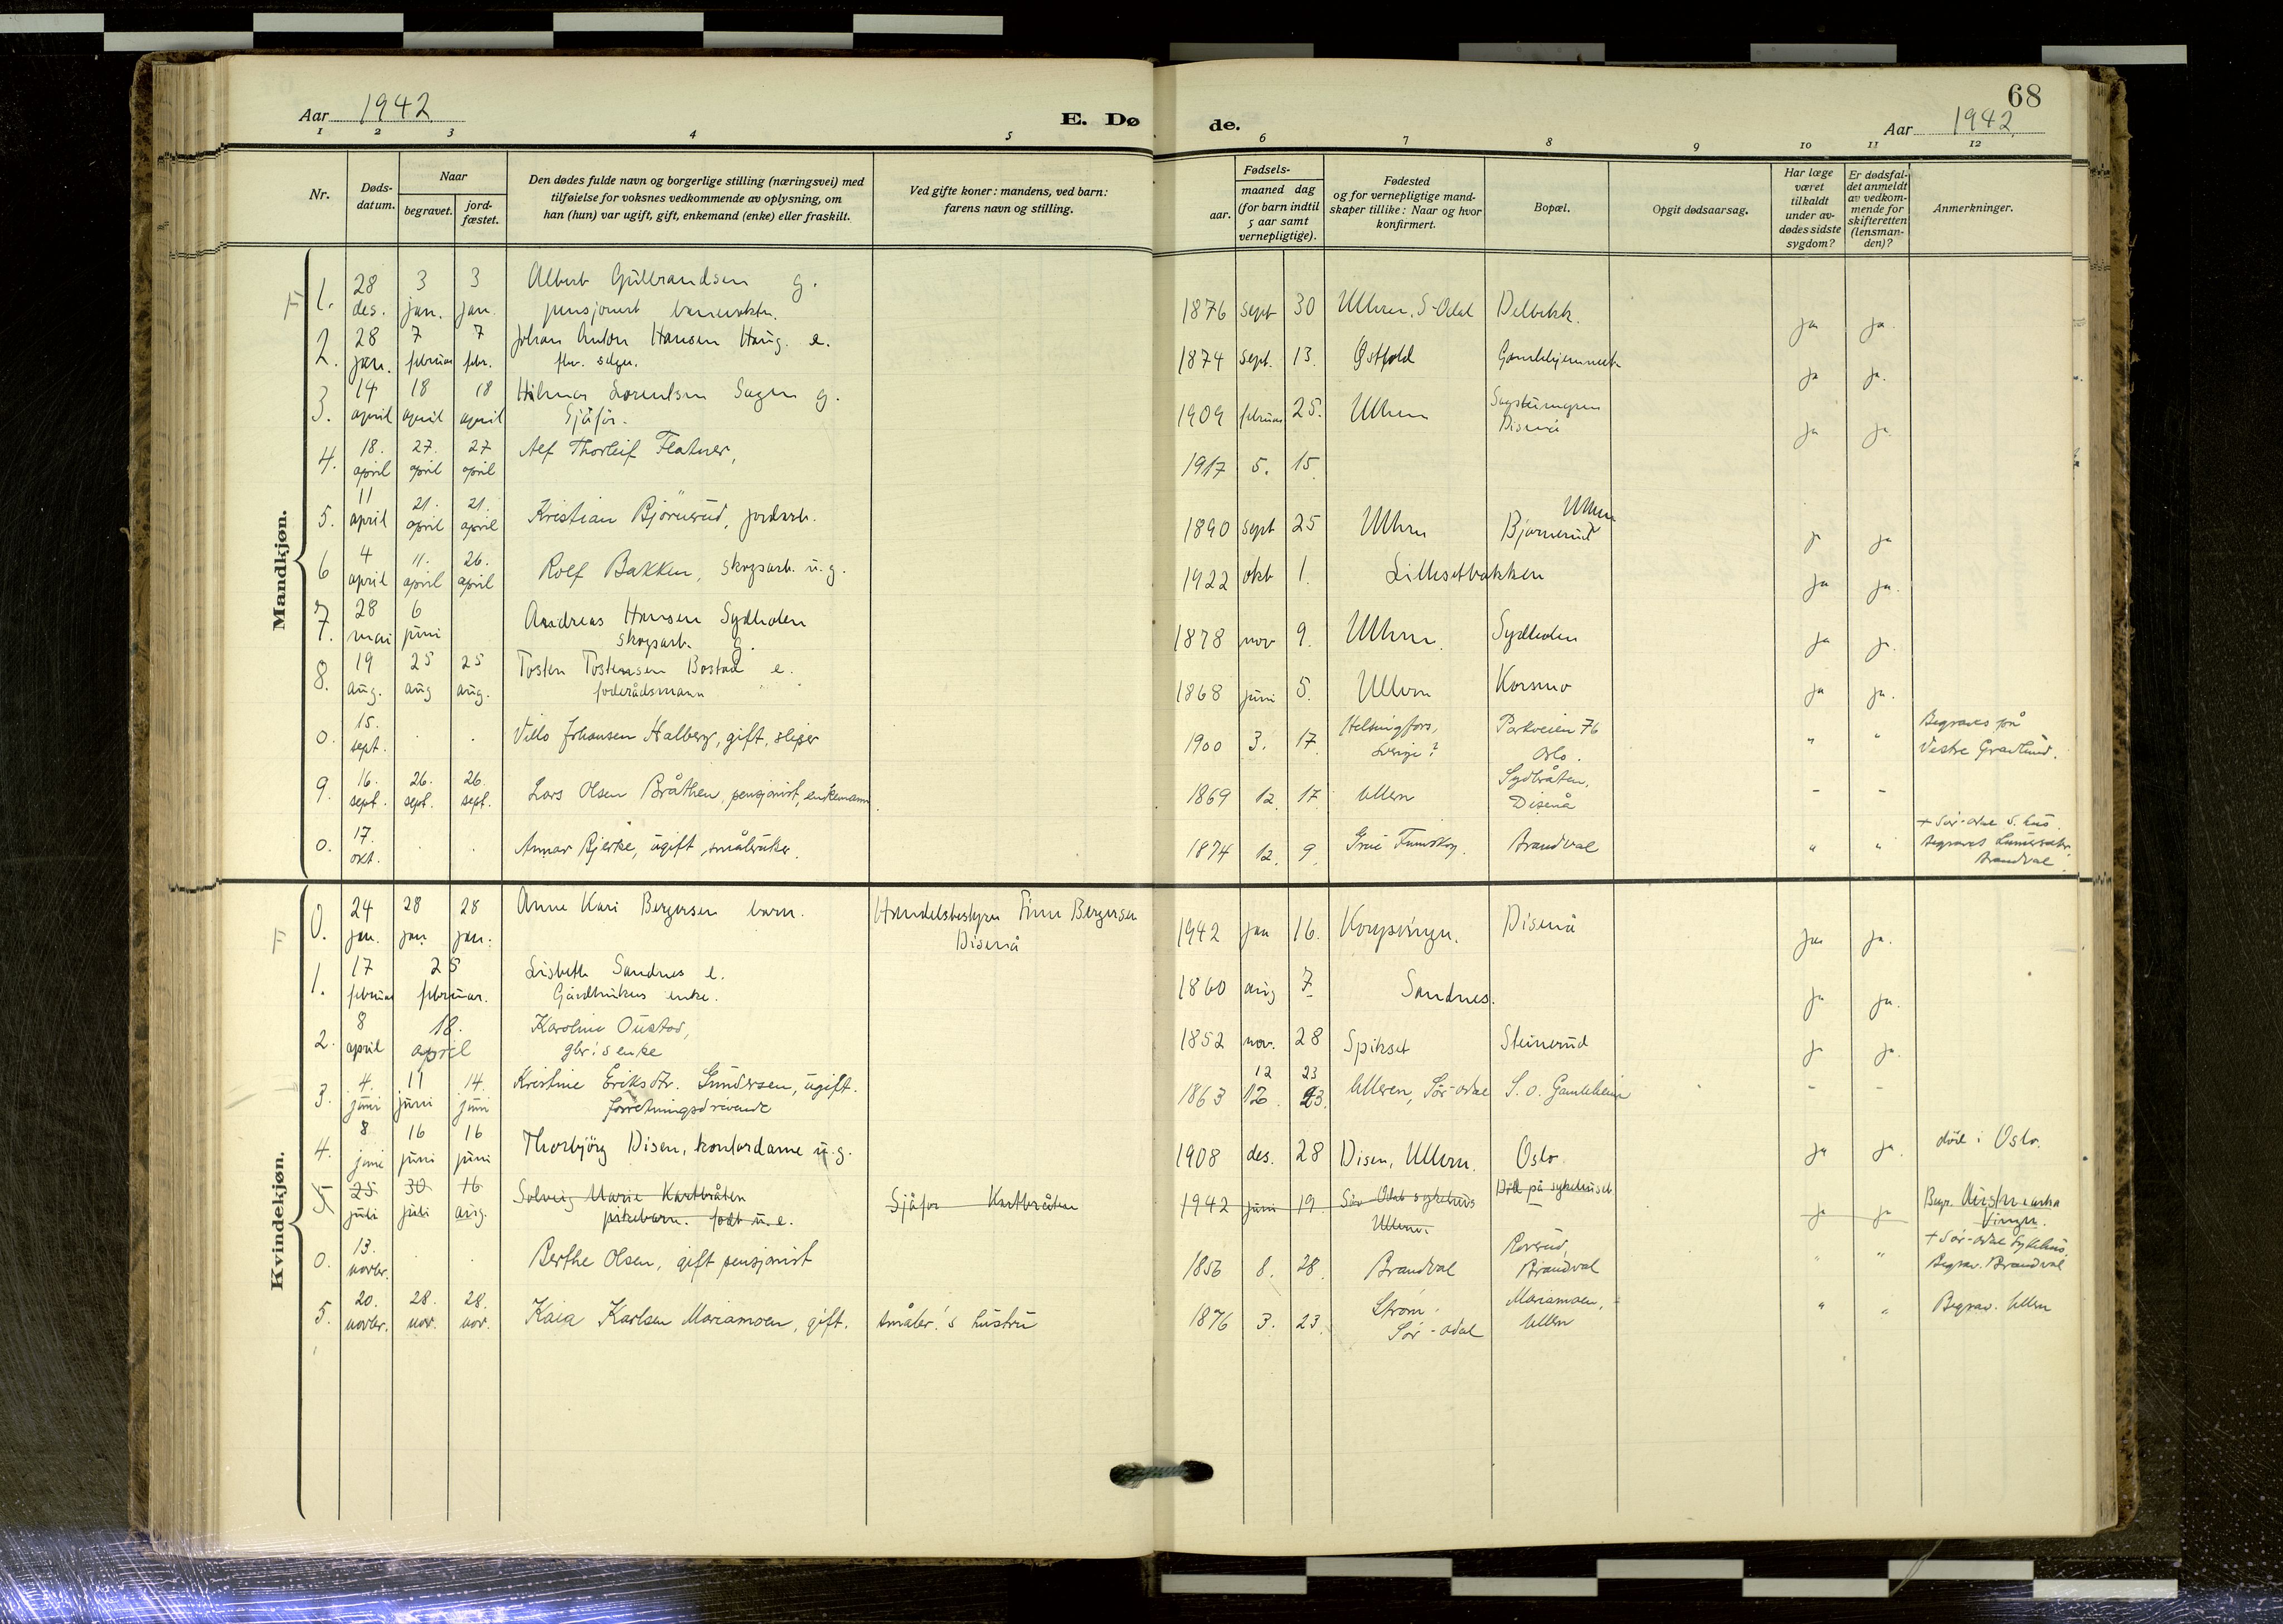 68
Aar 1942 E. Døde. Aar 1942
1 2 3 4 5 6 7 8 9 10 11 12
Nr.
Døds-
datum.
Naar
begravet.
jord-
fæstet.
Den dødes fulde navn og borgerlige stilling (næringsvei) med
tilføielse for voksnes vedkommende av oplysning, om
han (hun) var ugift, gift, enkemand (enke) eller fraskilt.
Ved gifte koner: mandens, ved barn:
farens navn og stilling.
Fødsels-
aar.
maaned dag
(for barn indtil
5 aar samt
vernepligtige).
Fødested
og for vernepligtige mand-
skaper tillike: Naar og hvor
konfirmert.
Bopæl.
Opgit dødsaarsag.
Har læge
været
tilkaldt
under av-
dødes sidste
sygdom?
Er dødsfal-
det anmeldt
av vedkom-
mende for
skifteretten
(lensman-
den)?
Anmerkninger.
Mandkjøn.
1. 28 3 3 Albert Gulbrandsen g.
des. jan. jan. pensjonert banevokter. 1876 sept 30 Ullern, S-Odal ja ja.
2. 28 7 7 Johan Anton Hansen Haug. e.
jan. februar febr. 1874 sept. 13. Østfold Gamlehjemmet ja ja.
3. 14 18 18 Hilmar Lorentsen Sagen g.
april april april Sjåfør. 1909 februar 25. Ullern Disenå ja ja
4. 18. 27. 27 Alf Thorleif Flatner,
april april april 1917 5. 15.
5. 11 21. 21. Kristian Bjørnerud, jordarb.
april april april 1890 sept 25 Ullern Bjørnerud Ullern ja ja
6 4 11. 26. Rolf Bakken, skogsarb. u.g.
april april april 1922 okt 1. Lillesetbakken ja ja.
7. 28 6 Andreas Hansen Sydholen
mai juni skogsarb. g. 1878 nov 9. Ullern. Sydholen ja ja.
8. 19 25 25 Tosten Tostensen Bostad e.
aug. aug aug. foderådsmann 1868 juni 5. Ullern Korsmo ja ja.
0. 15. sept. . . Villo Johansen Halberg, gift, sliper
1900 3. 17. Helsingfors, Sverige? Parkveien 76 Oslo. " " Begraves på
Vestre Gravlund.
9. 16. 26. 26. Lars Olsen Bråthen, pensjonist, enkemann
sept. sept. sept. 1869 12. 17. Ullern Sydbråten, Disenå - -
0. 17. okt. . . Annar Bjerke, ugift, småbruker.
1874 12. 9. Grue Finnskog. Brandval " " + Sør-Odal S. hus.
Brandval.
Kvindekjøn.
0. 24 28 28 Anne Kari Bergersen barn. Handelsbestyrer Finn Bergersen
jan. jan jan. Disenå 1942 jan 16. Kongsvinger. Disenå ja ja.
1. 17 25 Lisbeth Sandnes e.
februar februar. Gårdbrukers enke. 1860 aug 7. Sandnes. ja ja.
2. 8 18. Karoline Oustad,
april april gbr's enke 1852 nov. 28 Spikset Steinerud ja ja.
12 23
3. 4. 11 14. Kristine Eriksdtr. Gundersen, ugift.
juni juni juni forretningsdrivende 1863 12. 23. Ulleren, Sør-Odal S. O. Gamleheim - -
4. 8 16 16 Thorbjörg Disen, kontordame u.g.
juni juni juni 1908 des. 28 Disen, Ullern. Oslo ja ja. død i Oslo.
5 25 30 16 Solveig Marie Kartbråten Sjåfør Kartbråten
juli juli aug. pikebarn. født u.e. 1942 juni 19 Sør Odal sykehus Ullern. Død på sykehuset ja ja Begr. Austmarka
Vinger.
0. 13. novbr. . Berthe Olsen, gift pensjonist
1856 8. 28. Brandval Roverud, Brandval " " + Sør-Odal Sykehus.
Begrav. Brandval
5. 20. 28. 28. Kaia Karlsen Mariamoen, gift. småbr.'s hustru
novbr. nov. nov. 1876 3. 23. Strøm. Sør-Odal Mariamoen, Ullern " " Begrav. Ullern